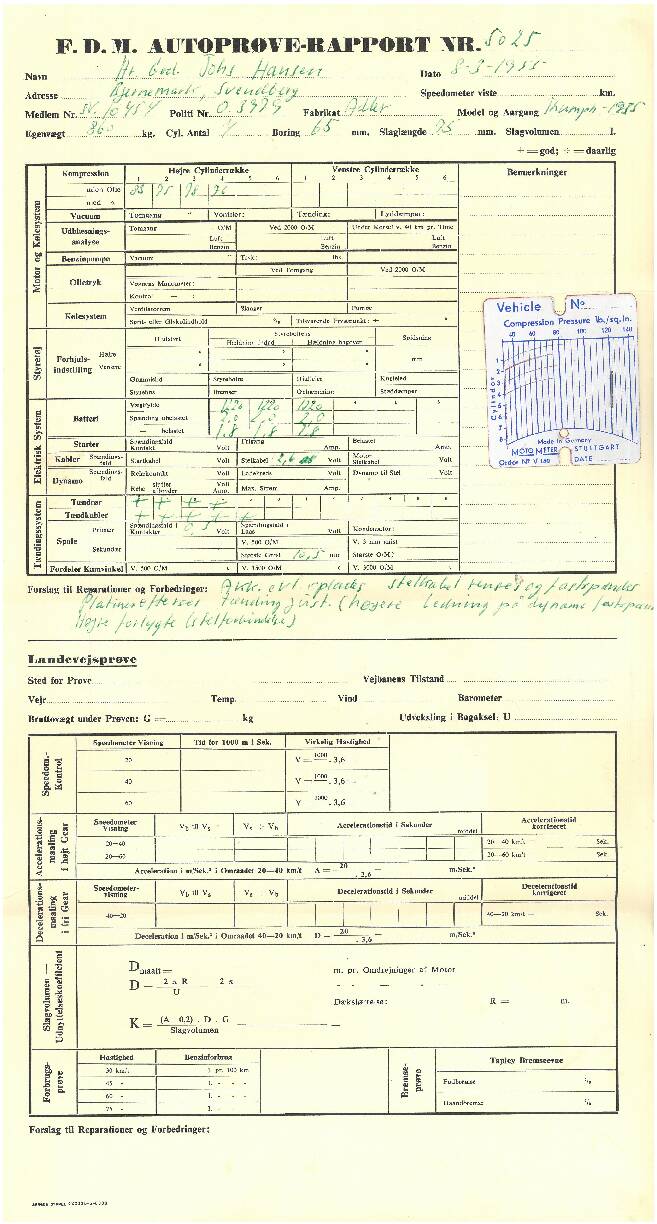 F. D. M. AUTOPRØVE-RAPPORT NR. 5025
Navn Hr. Grd. Johs Hansen Dato 8-3-1955
Adresse Bjernemark, Svendborg Speedometer viste km.
Medlem Nr. SV. 10454 Politi Nr. 0.3979 Fabrikat Adler Model og Aargang Trumph-1935
Egenvægt 860 kg. Cyl. Antal 4 Boring 65 mm. Slaglængde 75 mm. Slagvolumen l.
+ = god; ÷ = daarlig
Motor og Kølesystem
Kompression Højre Cylinderrække Venstre Cylinderrække Bemærkninger
1 2 3 4 5 6 1 2 3 4 5 6
uden Olie 85 75 78 76
med »
Vacuum Tomgang " Ventiler: Tænding: Lyddæmper:
Udblæsnings-analyse Tomgang O/M Ved 2000 O/M Under Kørsel v. 40 km pr. Time
Luft Luft Luft
Benzin Benzin Benzin
Benzinpumpe Vacuum " Tryk: lbs.
Olietryk Ved Tomgang Ved 2000 O/M
Vognens Manometer:
Kontrol — :
Kølesystem Ventilatorrem Slanger Pumpe
Sprit- eller Glykolindhold % Tilsvarende Frysepunkt: ÷ °
Styretøj
Forhjuls-indstilling Hjulstyrt Styreboltens Spidsning
Hældning indad Hældning bagover
Højre ° ° ° mm
Venstre ° ° °
Gummiled Styrebolte Hjullejer Kugleled
Styrehus Bremser Ophængning Støddæmper
Elektrisk System
Batteri Vægtfylde 1220 1220 1220 4 5 6
Spænding ubelastet 2,0 2,0 2,0
— belastet 1,8 1,8 1,8
Starter Spændingsfald Kontakt Volt Fritrang Amp. Belastet Amp.
Kabler Spændings-fald Startkabel Volt Stelkabel 2,6 Volt Motor-Stelkabel Volt
Dynamo Spændings-fald Returkontakt Volt Ladekreds Volt Dynamo til Stel Volt
Relæ slutter afbryder Volt Amp. Max. Strøm Amp.
Tændingssystem
Tændrør + + + +
Tændkabler + + + + +
Spole Primær Spændingsfald i Kontakter 0,5 Volt Spændingsfald i Laas Volt Kondensator:
Sekundær V. 500 O/M V. 3 mm gnist
Største Gnist 10,5 mm Største O/M?
Fordeler Kamvinkel V. 500 O/M ° V. 1500 O/M ° V. 3000 O/M °
Forslag til Reparationer og Forbedringer: Akk. evt oplades stelkabel renses og fastspændes
Platiner efterses Tænding just. (højere Ledning på dynamo fastspæn
Højre forlygte (stelforbindelse)
Vehicle No
Compression Pressure lb./sq. in.
40 60 80 100 120 140
Cylindor
1
2
3
4
5
6
7
8
Made in Germany
MOTO METER STUTTGART
Order Nr V 180 DATE
Landevejsprøve
Sted for Prøve Vejbanens Tilstand
Vejr Temp. Vind Barometer
Bruttovægt under Prøven: G = kg Udveksling i Bagaksel: U
Speedom.-Kontrol
Speedometer Visning Tid for 1000 m i Sek. Virkelig Hastighed
20 V = 1000 . 3,6 —
40 V — 1000 . 3,6 —
60 V 1000 . 3,6
Accelerations-maaling i højt Gear
Speedometer Visning Vb til Vs Vs ÷ Vb Accelerationstid i Sekunder middel Accelerationstid korrigeret
20—40 20—40 km/t Sek.
20—60 20—60 km/t — Sek.
Acceleration i m/Sek.² i Omraadet 20—40 km/t A = 20 . 3,6 — m/Sek.²
Decelerations-maaling i fri Gear
Speedometer-visning Vb til Vs Vs Vb Decelerationstid i Sekunder middel Decelerationstid korrigeret
40—20 40—20 km/t — Sek.
Deceleration i m/Sek.² i Omraadet 40—20 km/t D — 20 . 3,6 — m/Sek.²
Slagvolumen — Udnyttelseskoefficient
D maalt = m. pr. Omdrejninger af Motor
D — 2 π R U 2 π
Dækstørrelse: R = m.
K = (A 0,2) . D . G Slagvolumen
Forbrugs-prøve
Hastighed Benzinforbrug
30 km/t l. pr. 100 km
45 - l. - -
60 - l. - -
75 - l. - -
Bremse-prøve
Tapley Bremseevne
Fodbremse %
Haandbremse %
Forslag til Reparationer og Forbedringer: